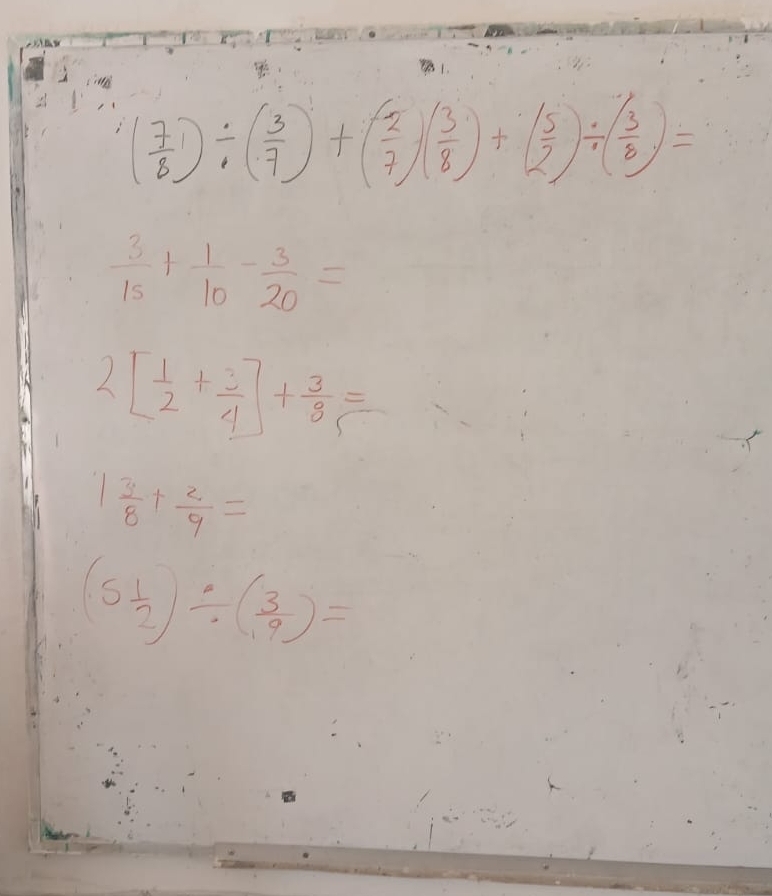 (7/8) ÷ (3/7) + (2/7)(3/8) + (5/2) ÷ (3/8) =
3/15 + 1/10 - 3/20 =
2[1/2 + 3/4] + 3/8 =
1 3/8 + 2/9 =
(5 1/2) ÷ (3/9) =